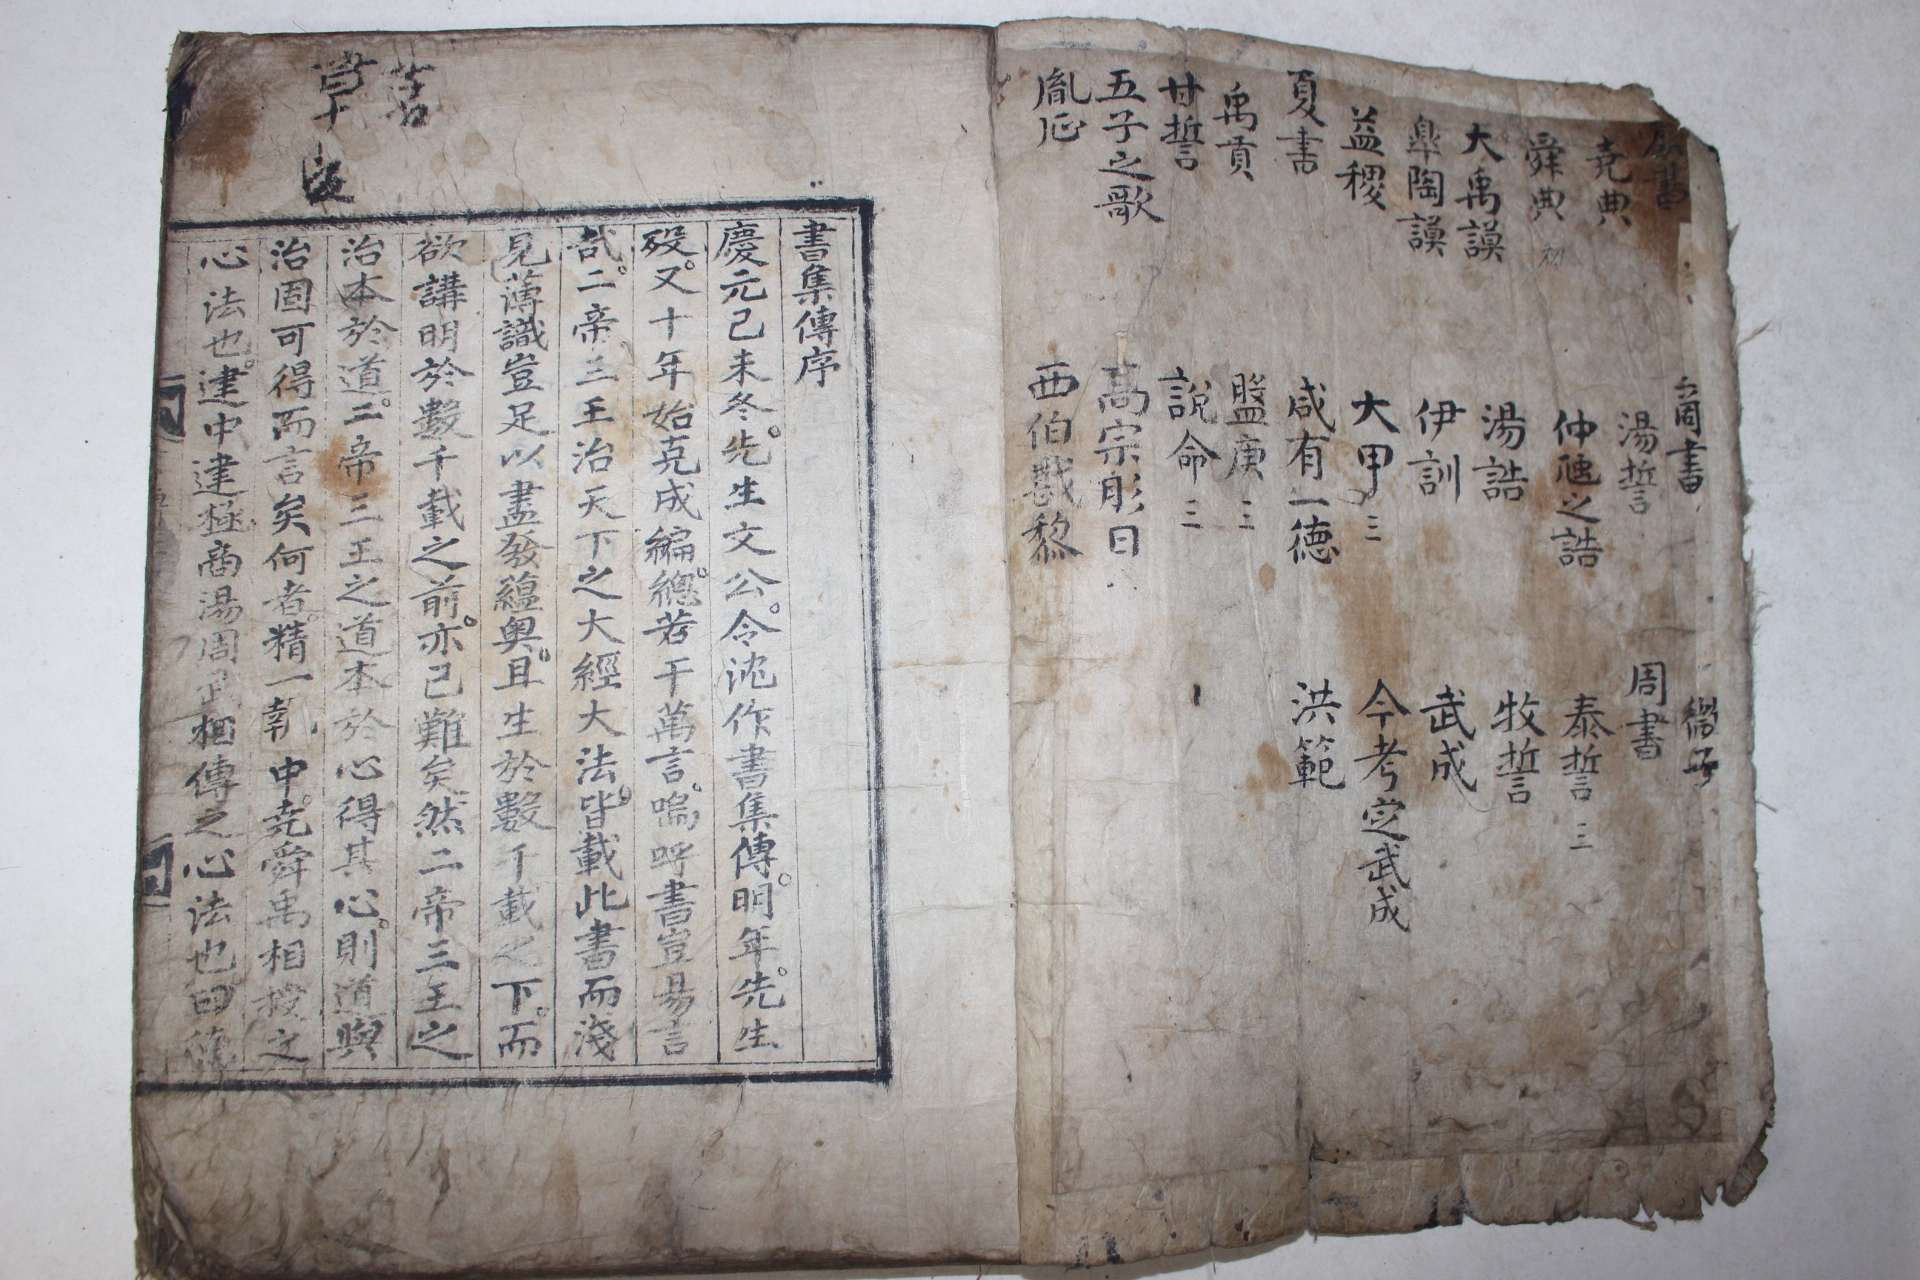 虞書
堯典
舜典
大禹謨
皐陶謨
益稷
夏書
禹貢
甘誓
五子之歌
胤征
商書
湯誓
仲虺之誥
湯誥
伊訓
太甲三
咸有一德
盤庚三
說命三
高宗肜日
西伯戡黎
微子
周書
泰誓三
牧誓
武成
今考定武成
洪範
書集傳序
慶元己未冬先生文公令沈作書集傳明年先生
歿又十年始克成編總若干萬言嗚呼書豈易言
哉二帝三王治天下之大經大法皆載此書而淺
見薄識豈足以盡發蘊奧且生於數千載之下而
欲講明於數千載之前亦已難矣然二帝三王之
治本於道二帝三王之道本於心得其心則道與
治固可得而言矣何者精一執中堯舜禹相授之
心法也建中建極商湯周武相傳之心法也曰德